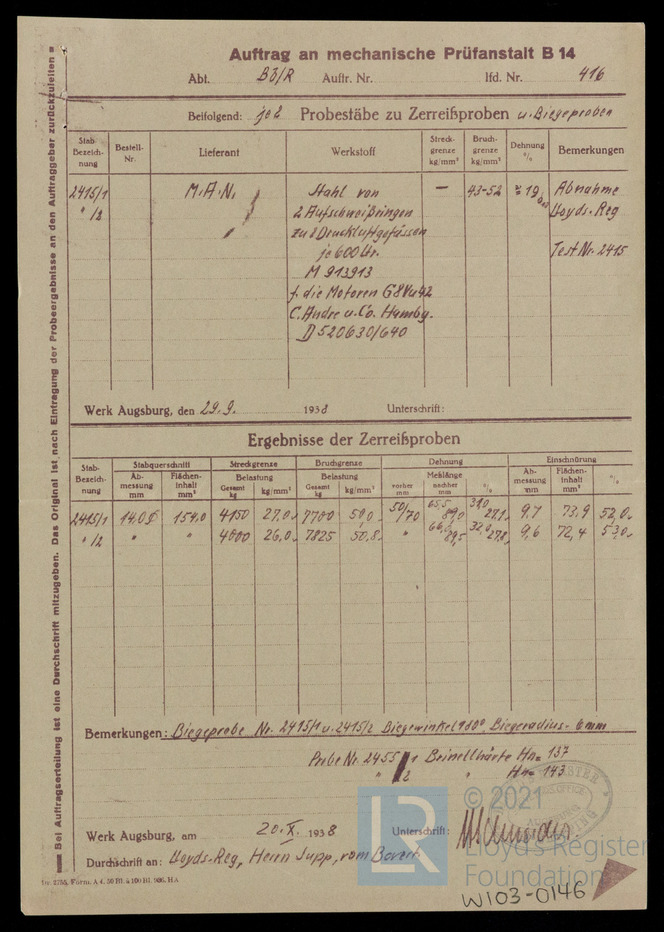 Auftrag an mechanische Prüfanstalt B 14
Abt. Bö/R Auftr. Nr. lfd. Nr. 416
Beifolgend: je 2 Probestäbe zu Zerreißproben u. Biegeproben
Stab- Bezeich- nung Bestell- Nr. Lieferant Werkstoff Streck- grenze kg/mm² Bruch- grenze kg/mm² Dehnung % Bemerkungen
2415/1 M.A.N. Stahl von — 43-52 19 Abnahme
" /2 2 Aufschweißringen Lloyds-Reg
zu 2 Druckluftgefässen
je 600 Ltr. Test Nr. 2415
M 913913
f. die Motoren G8Vu42
C. Andre u. Co. Hambg.
D 520630/640
Werk Augsburg, den 29.9. 1938 Unterschrift:
Ergebnisse der Zerreißproben
Stab- Bezeich- nung Stabquerschnitt Streckgrenze Bruchgrenze Dehnung Einschnürung
Ab- messung mm Flächen- inhalt mm² Belastung Gesamt kg kg/mm² Belastung Gesamt kg kg/mm² vorher mm Meßlänge nachher mm % Ab- messung mm Flächen- inhalt mm² %
2415/1 14,0 ∅ 154,0 4150 27,0 7700 50,0 50/70 65,5 89,0 31,0 27,1 9,7 73,9 52,0
" /2 " " 4000 26,0 7825 50,8 " 66,0 89,5 32,0 27,8 9,6 72,4 53,0
Bemerkungen: Biegeprobe Nr. 2415/1 u. 2415/2 Biegewinkel 180° Biegeradius - 6 mm
Probe Nr. 2455/1 Brinellhärte Hn = 137
" /2 " Hn = 143
Werk Augsburg, am 20. X. 1938 Unterschrift:
Durchschrift an: Lloyds-Reg, Herrn Jupp, vom Bovert
Form. A 4. 50 Bl. à 100 Bl. 936. HA
Bei Auftragserteilung ist eine Durchschrift mitzugeben. Das Original ist nach Eintragung der Probeergebnisse an den Auftraggeber zurückzuleiten
LR
© 2021
Lloyd's Register
Foundation
W103-0146